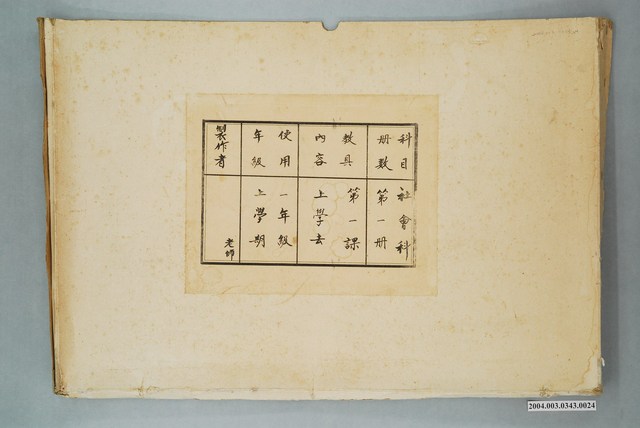 科目 社會科
冊數 第一冊
教具內容 第一課 上學去
使用年級 一年級 上學期
製作者 老師
2004.003.0343.0024